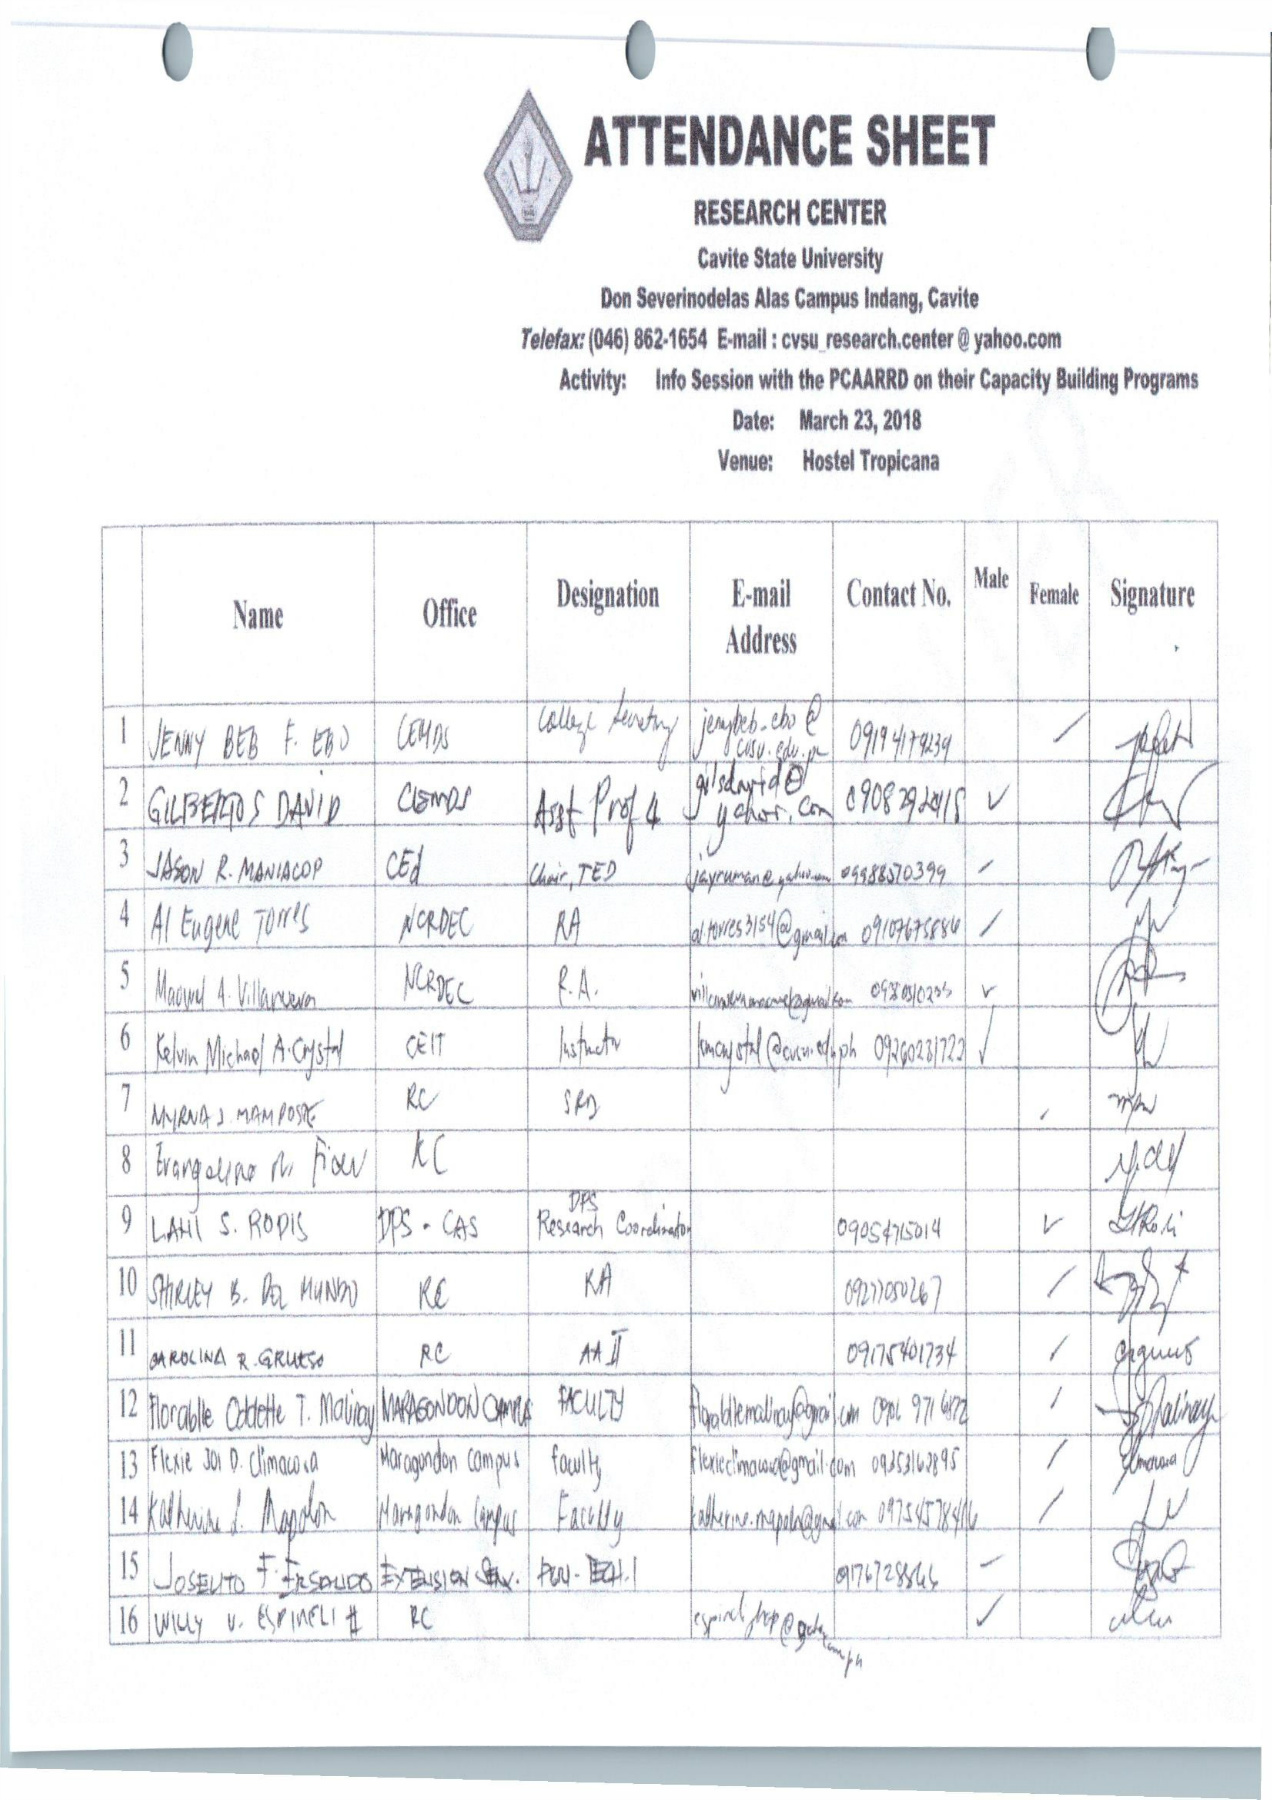 ATTENDANCE SHEET
RESEARCH CENTER
Cavite State University
Don Severinodelas Alas Campus Indang, Cavite
Telefax: (046) 862-1654 E-mail : cvsu_research.center @ yahoo.com
Activity: Info Session with the PCAARRD on their Capacity Building Programs
Date: March 23, 2018
Venue: Hostel Tropicana
Name Office Designation E-mail Address Contact No. Male Female Signature
1 JENNY BEB F. EBO CEMDS College Secretary jenybeb.ebo@cvsu.edu.ph 09194179239
2 GILBERTO S DAVID CEMDS Asst Prof 4 gilsdavid@yahoo.com
3 JASON R. MANIACOP CEd Chair, TED jayruman@yahoo.com 09988570399
4 Al Eugene Torres NCRDEC RA al.torres3154@gmail.com 09107675886
5 A. Villanueva NCRDEC R.A.
6 Kelvin Michael A. Crystal CEIT Instructor kmcrystal@cvsu.edu.ph 09260231722
7 MYRNA J. RC
8 RC
9 S. RODIS DPS - CAS DPS Research Coordinator 09054715014
10 SHIRLEY B. DEL MUNDO RC RA 09277050267
11 CAROLINA R. GRUESO RC AA II 09175401734
12 Florabelle Oddette T. Malinay MARAGONDON CAMPUS FACULTY
13 Flexie Joi D. Climacosa Maragondon Campus faculty 09353162895
14 Katherine Mapolon Maragondon Campus Faculty
15 JOSELITO F. EXTENSION SERV.
16 WILLY V. ESPINELI II RC